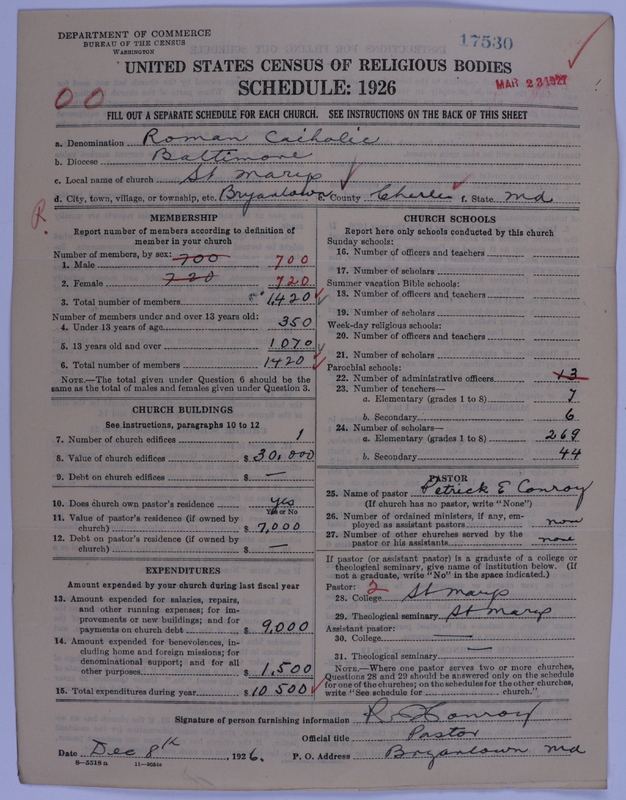 DEPARTMENT OF COMMERCE
BUREAU OF THE CENSUS
WASHINGTON
17530
MAR 23 1927
UNITED STATES CENSUS OF RELIGIOUS BODIES
SCHEDULE: 1926
00
FILL OUT A SEPARATE SCHEDULE FOR EACH CHURCH. SEE INSTRUCTIONS ON THE BACK OF THIS SHEET
a. Denomination Roman Catholic
b. Diocese Baltimore
c. Local name of church St Marys
d. City, town, village, or township, etc. Bryantown e. County Charles f. State Md
R
MEMBERSHIP
Report number of members according to definition of
member in your church
Number of members, by sex:
1. Male 700 700
2. Female 720 720
3. Total number of members 1,420
Number of members under and over 13 years old:
4. Under 13 years of age 350
5. 13 years old and over 1070
6. Total number of members 1420
NOTE.—The total given under Question 6 should be the
same as the total of males and females given under Question 3.
CHURCH BUILDINGS
See instructions, paragraphs 10 to 12
7. Number of church edifices 1
8. Value of church edifices $ 30,000
9. Debt on church edifices $ —
10. Does church own pastor's residence yes
Yes or No
11. Value of pastor's residence (if owned by
church) $ 7,000
12. Debt on pastor's residence (if owned by
church) $ —
EXPENDITURES
Amount expended by your church during last fiscal year
13. Amount expended for salaries, repairs,
and other running expenses; for im-
provements or new buildings; and for
payments on church debt $ 9,000
14. Amount expended for benevolences, in-
cluding home and foreign missions; for
denominational support; and for all
other purposes $ 1,500
15. Total expenditures during year $ 10 500
CHURCH SCHOOLS
Report here only schools conducted by this church
Sunday schools:
16. Number of officers and teachers
17. Number of scholars
Summer vacation Bible schools:
18. Number of officers and teachers
19. Number of scholars
Week-day religious schools:
20. Number of officers and teachers
21. Number of scholars
Parochial schools:
22. Number of administrative officers 13
23. Number of teachers—
a. Elementary (grades 1 to 8) 7
b. Secondary 6
24. Number of scholars—
a. Elementary (grades 1 to 8) 269
b. Secondary 44
PASTOR
25. Name of pastor Patrick E Conroy
(If church has no pastor, write "None")
26. Number of ordained ministers, if any, em-
ployed as assistant pastors none
27. Number of other churches served by the
pastor or his assistants none
If pastor (or assistant pastor) is a graduate of a college or
theological seminary, give name of institution below. (If
not a graduate, write "No" in the space indicated.)
Pastor: 2
28. College St Marys
29. Theological seminary St Marys
Assistant pastor:
30. College —
31. Theological seminary —
NOTE.—Where one pastor serves two or more churches,
Questions 28 and 29 should be answered only on the schedule
for one of the churches; on the schedules for the other churches,
write "See schedule for church."
Signature of person furnishing information Conroy
Official title Pastor
Date Dec 8th, 1926. P. O. Address Bryantown Md
8—5318 a